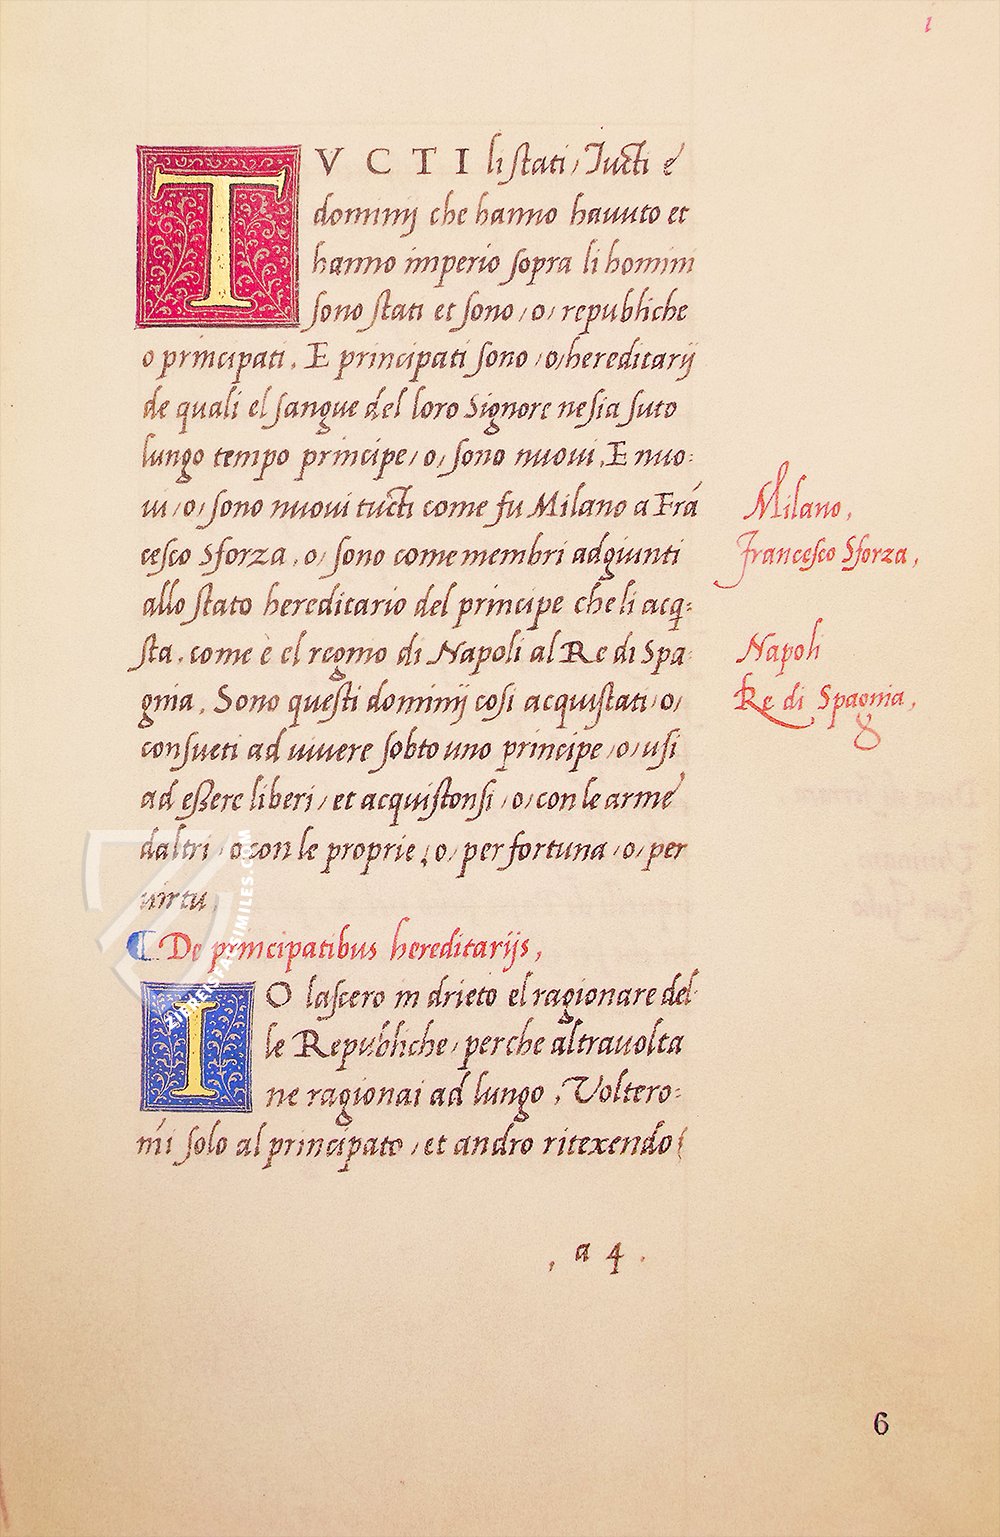 1
TVCTI li stati, Tucti e
dominij che hanno hauuto et
hanno imperio sopra li homini
sono stati et sono, o, republiche
o principati. E principati sono, o, hereditarij
de quali el sangue del loro Signore ne sia suto
lungo tempo principe, o, sono nuoui. E nuo-
ui, o, sono nuoui tucti come fu Milano a Frā
cesco Sforza, o, sono come membri adgiunti
allo stato hereditario del principe che li acq-
sta, come è el regno di Napoli al Re di Spa-
gnia. Sono questi dominij cosi acquistati, o,
consueti ad viuere sobto uno principe, o, usi
ad eßere liberi, et acquistonsi, o, con le arme
daltri, o con le proprie, o, per fortuna, o, per
uirtu,
Milano,
Francesco Sforza,
Napoli
Re di Spagnia,
¶ De principatibus hereditarijs,
IO lascero in drieto el ragionare del-
le Republiche, perche altrauolta
ne ragionai ad lungo, Voltero-
mi solo al principato, et andro ritexendo
, a 4 .
6
ZIEREISFACSIMILES.COM